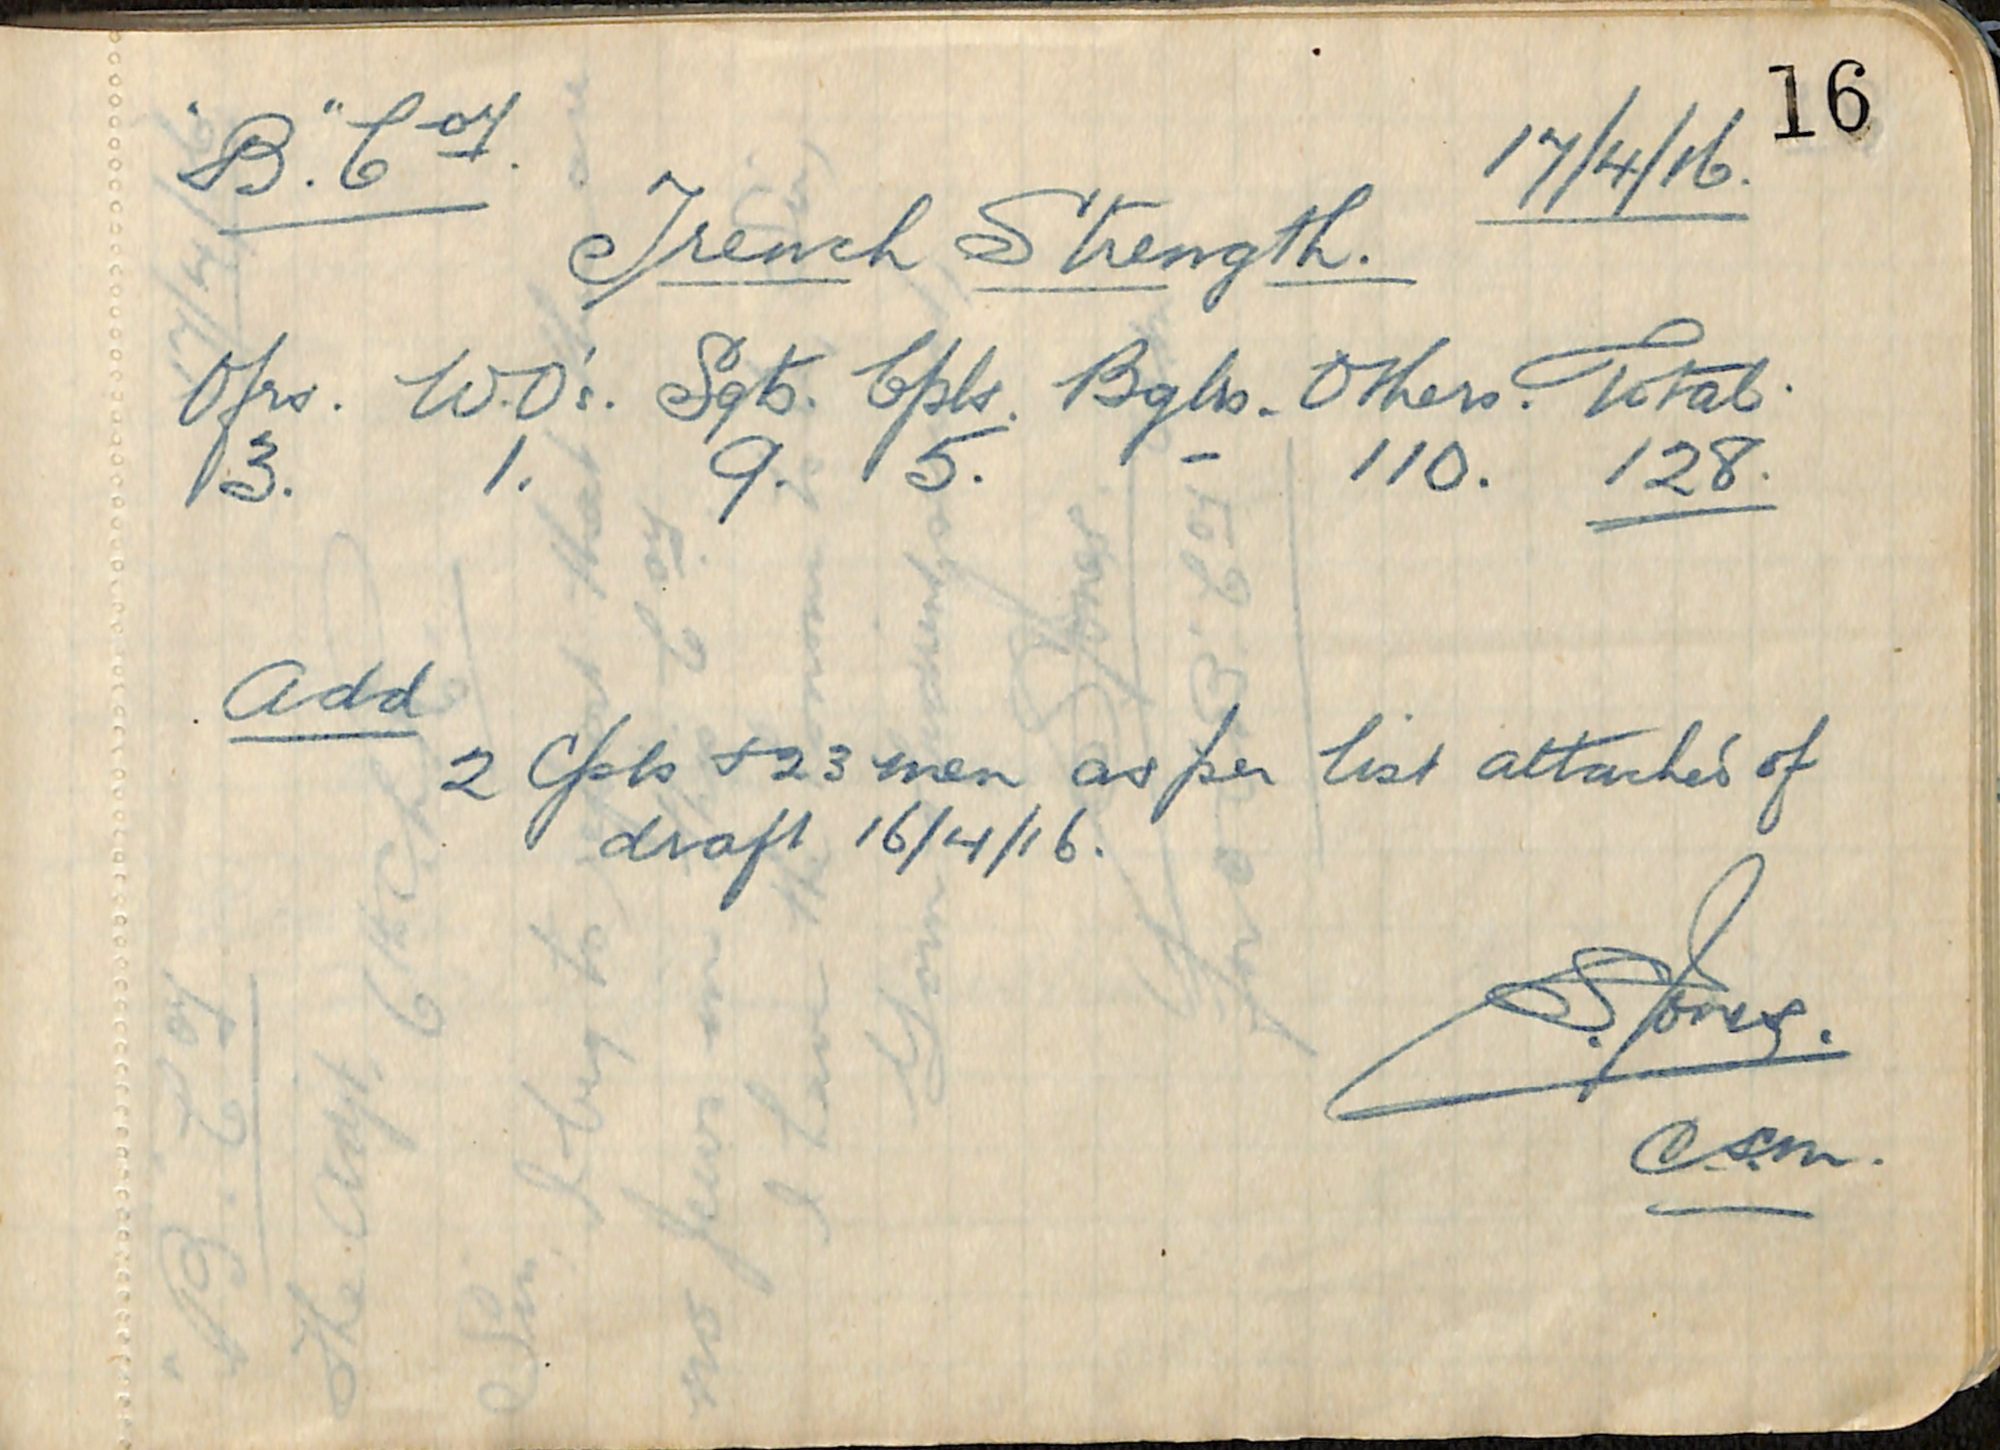 16
"B." Coy. 17/4/16.
Trench Strength.
Ofrs. W.O's. Sgts. Cpls. Bglrs. Others. Total.
3. 1. 9. 5. - 110. 128.
Add
2 Cpls & 23 men as per list attached of
draft 16/4/16.
S. Jones.
C.S.M.